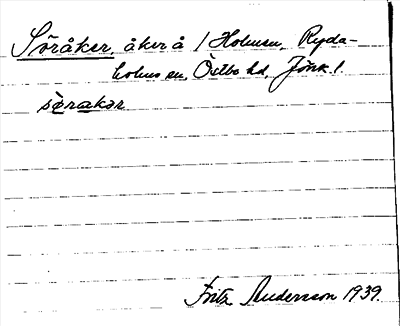 Söråker, åker å 1 Holmen, Ryda-
holms sn, Östbo hd, Jönk. l.
sö̀rakər
Fritz Andersson 1939.